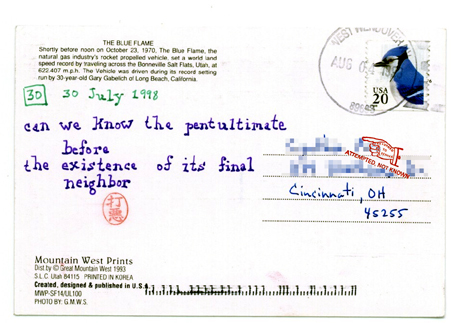 THE BLUE FLAME
Shortly before noon on October 23, 1970, The Blue Flame, the
natural gas industry's rocket propelled vehicle, set a world land
speed record by traveling across the Bonneville Salt Flats, Utah, at
622.407 m.p.h. The Vehicle was driven during its record setting
run by 30-year-old Gary Gabelich of Long Beach, California.
30 30 July 1998
can we know the pentultimate
before
the existence of its final
neighbor
WEST WENDOVER
AUG
USA
20
ATTEMPTED, NOT KNOWN
Cincinnati, OH
45255
Mountain West Prints
Dist.by © Great Mountain West 1993
S.L.C. Utah 84115 PRINTED IN KOREA
Created, designed & published in U.S.A.
MWP-SF14/UL100
PHOTO BY: G.M.W.S.